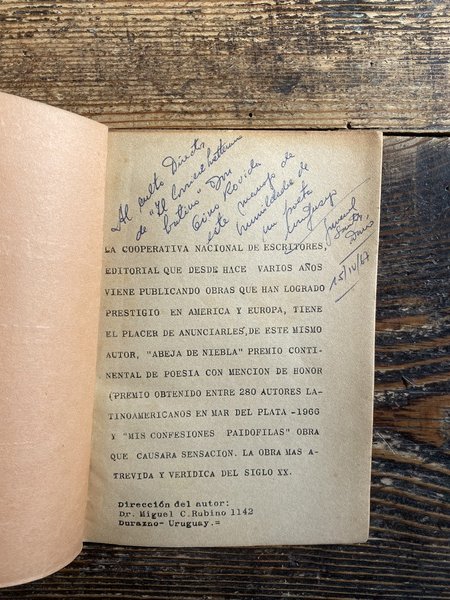 Al culto Director
de "Il Corriere
Don
Gino Rovida
este manojo de
humildades de
un poeta
uruguayo
15/IV/67
LA COOPERATIVA NACIONAL DE ESCRITORES,
EDITORIAL QUE DESDE HACE VARIOS AÑOS
VIENE PUBLICANDO OBRAS QUE HAN LOGRADO
PRESTIGIO EN AMERICA Y EUROPA, TIENE
EL PLACER DE ANUNCIARLES,DE ESTE MISMO
AUTOR, "ABEJA DE NIEBLA" PREMIO CONTI-
NENTAL DE POESIA CON MENCION DE HONOR
(PREMIO OBTENIDO ENTRE 280 AUTORES LA-
TINOAMERICANOS EN MAR DEL PLATA -1966
Y "MIS CONFESIONES PAIDOFILAS" OBRA
QUE CAUSARA SENSACION. LA OBRA MAS A-
TREVIDA Y VERIDICA DEL SIGLO XX.
Dirección del autor:
Dr. Miguel C.Rubino 1142
Durazno- Uruguay.=